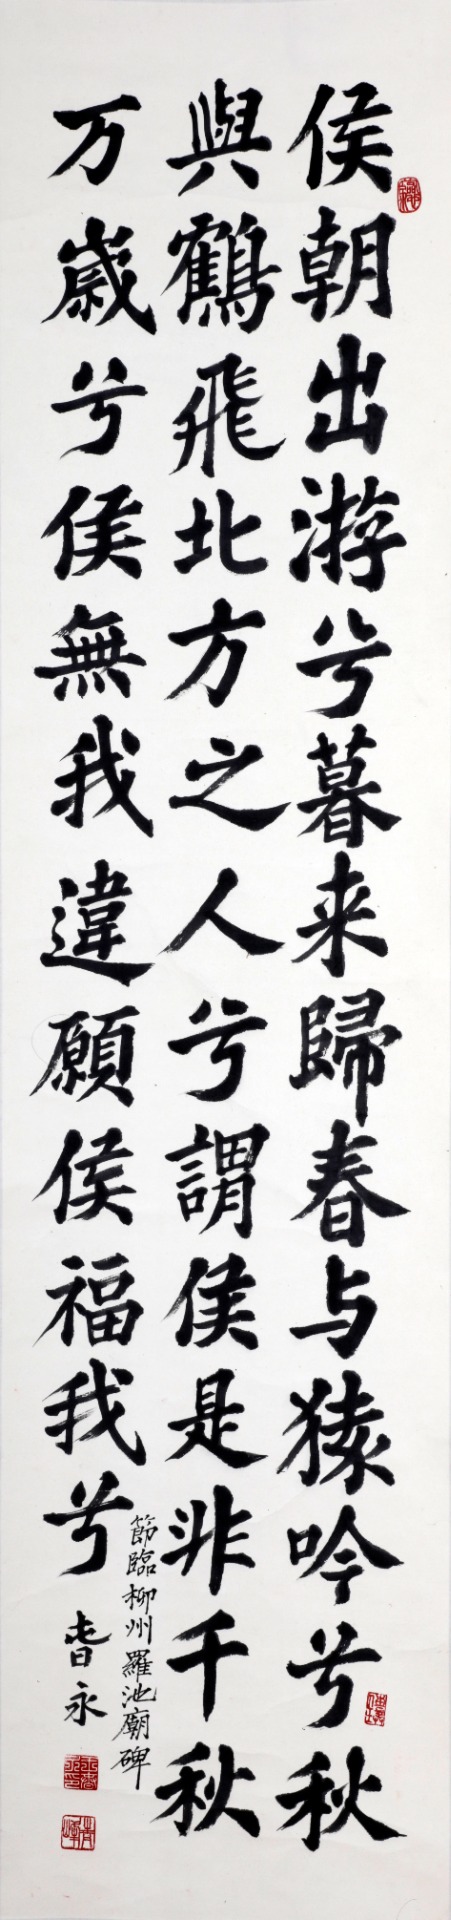 侯朝出游兮暮来歸春与猿吟兮秋
與鶴飛北方之人兮謂侯是非千秋
万歲兮侯無我違願侯福我兮
節臨柳州羅池廟碑
耆永